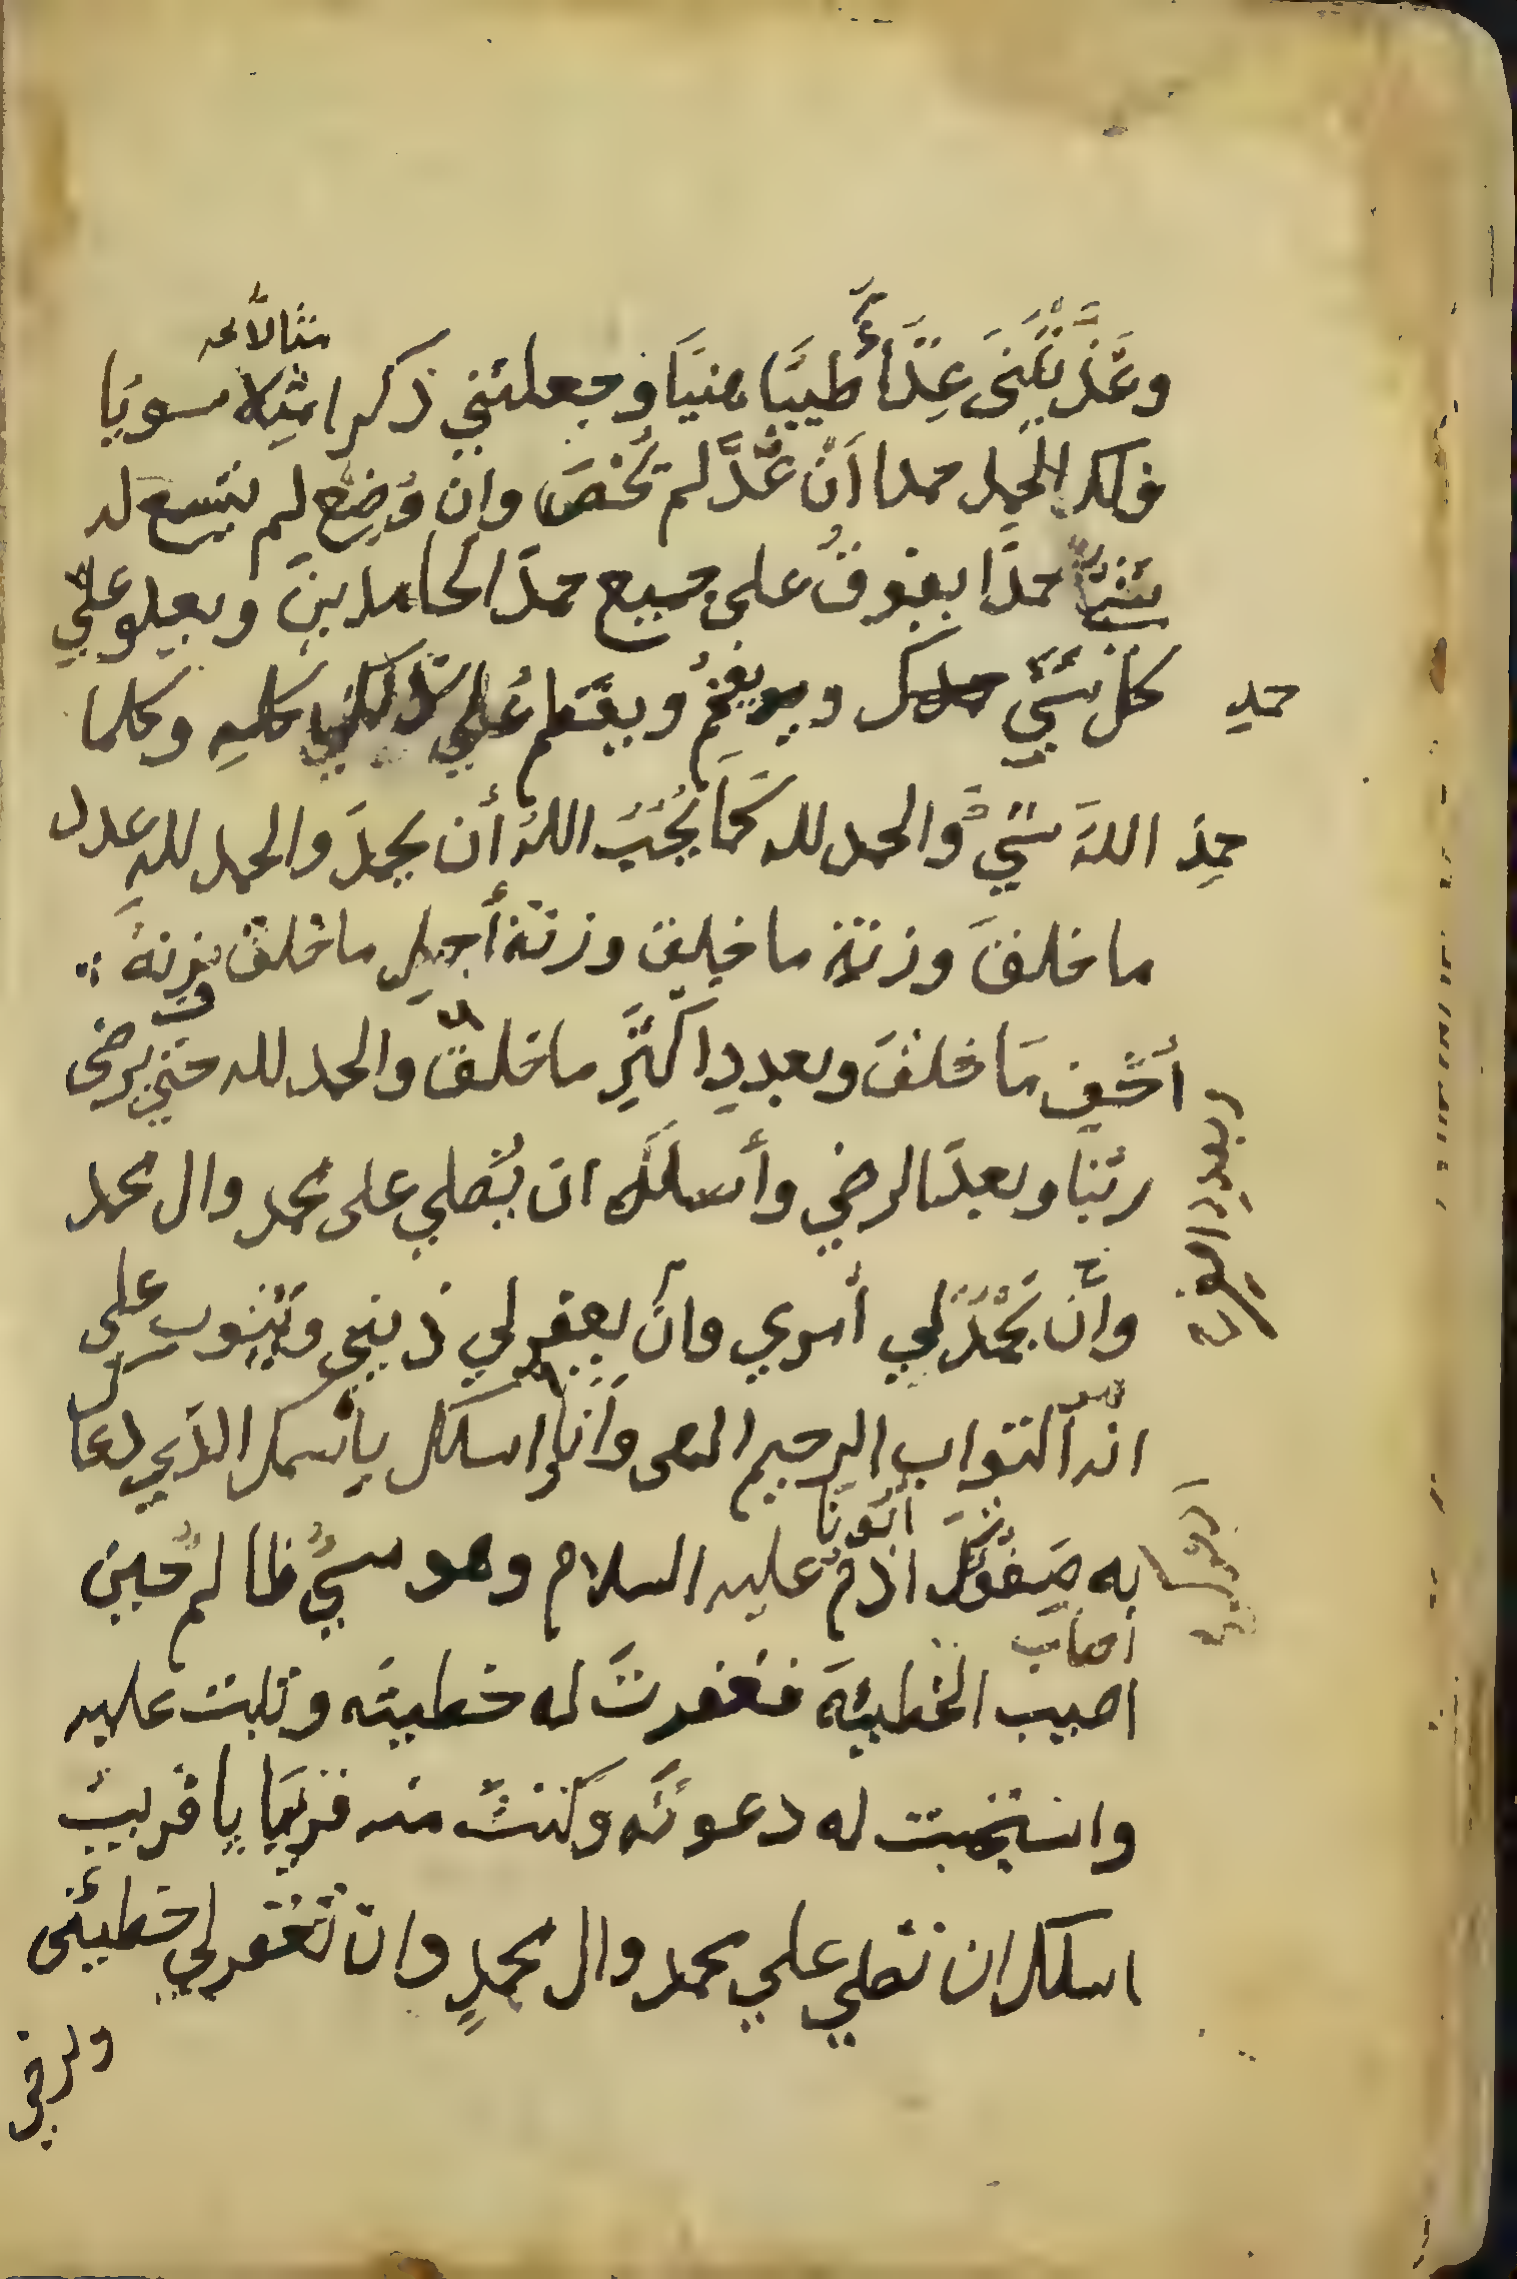 مثالا نخه
وغَذَّيْتَنِي غِذَآءً طيبًا هنيًا وجعلتني ذكرا مثلا سويا
فلك الحمد حمدا اَن عُدَّ لم يُحْصَ وان وُضِع لم يتسع له
شيئ حمدًا يفوقُ على جميع حمد الحامدين ويعلو على
حمد كل شيّ حمدك ويفخم ويعظم على ذلك كله وكلما
حمِد اللهَ شيّ والحمد لله كَما يُحِبُ اللهُ أن يحمدَ والحمد للهِ عدد
ما خلقَ وزنة ما خلق وزنة أجل ما خلق وبزنة
أخف مَا خلقَ وبعددِ اكثرِ ما خلق والحمد لله حتي يرضى
وبعدد اصغر
ربُنا وبعدَ الرضي وأسئله ان يُصلي على محمد وال محمد
وأن يحمد لي أمري وأن يغفر لي ذنبي ويتوب علي
انه التواب الرحيم الهى واَنا اسئلك باسمك الذي دعاك
أبونا
به صَفْوَتُكَ اٰدمُ عليه السلام وهو مسيٌ ظالم حين
أصاب
اصيب الخطيئةَ فغفرتَ له خطيئته وتبت عليه
واستجبت له دعوتَه وكنتَ منه قريبا يا قريبُ
اسئلك ان تصلي علي محمد وال محمدٍ وان تغفر لي خطيئتى
وترضى